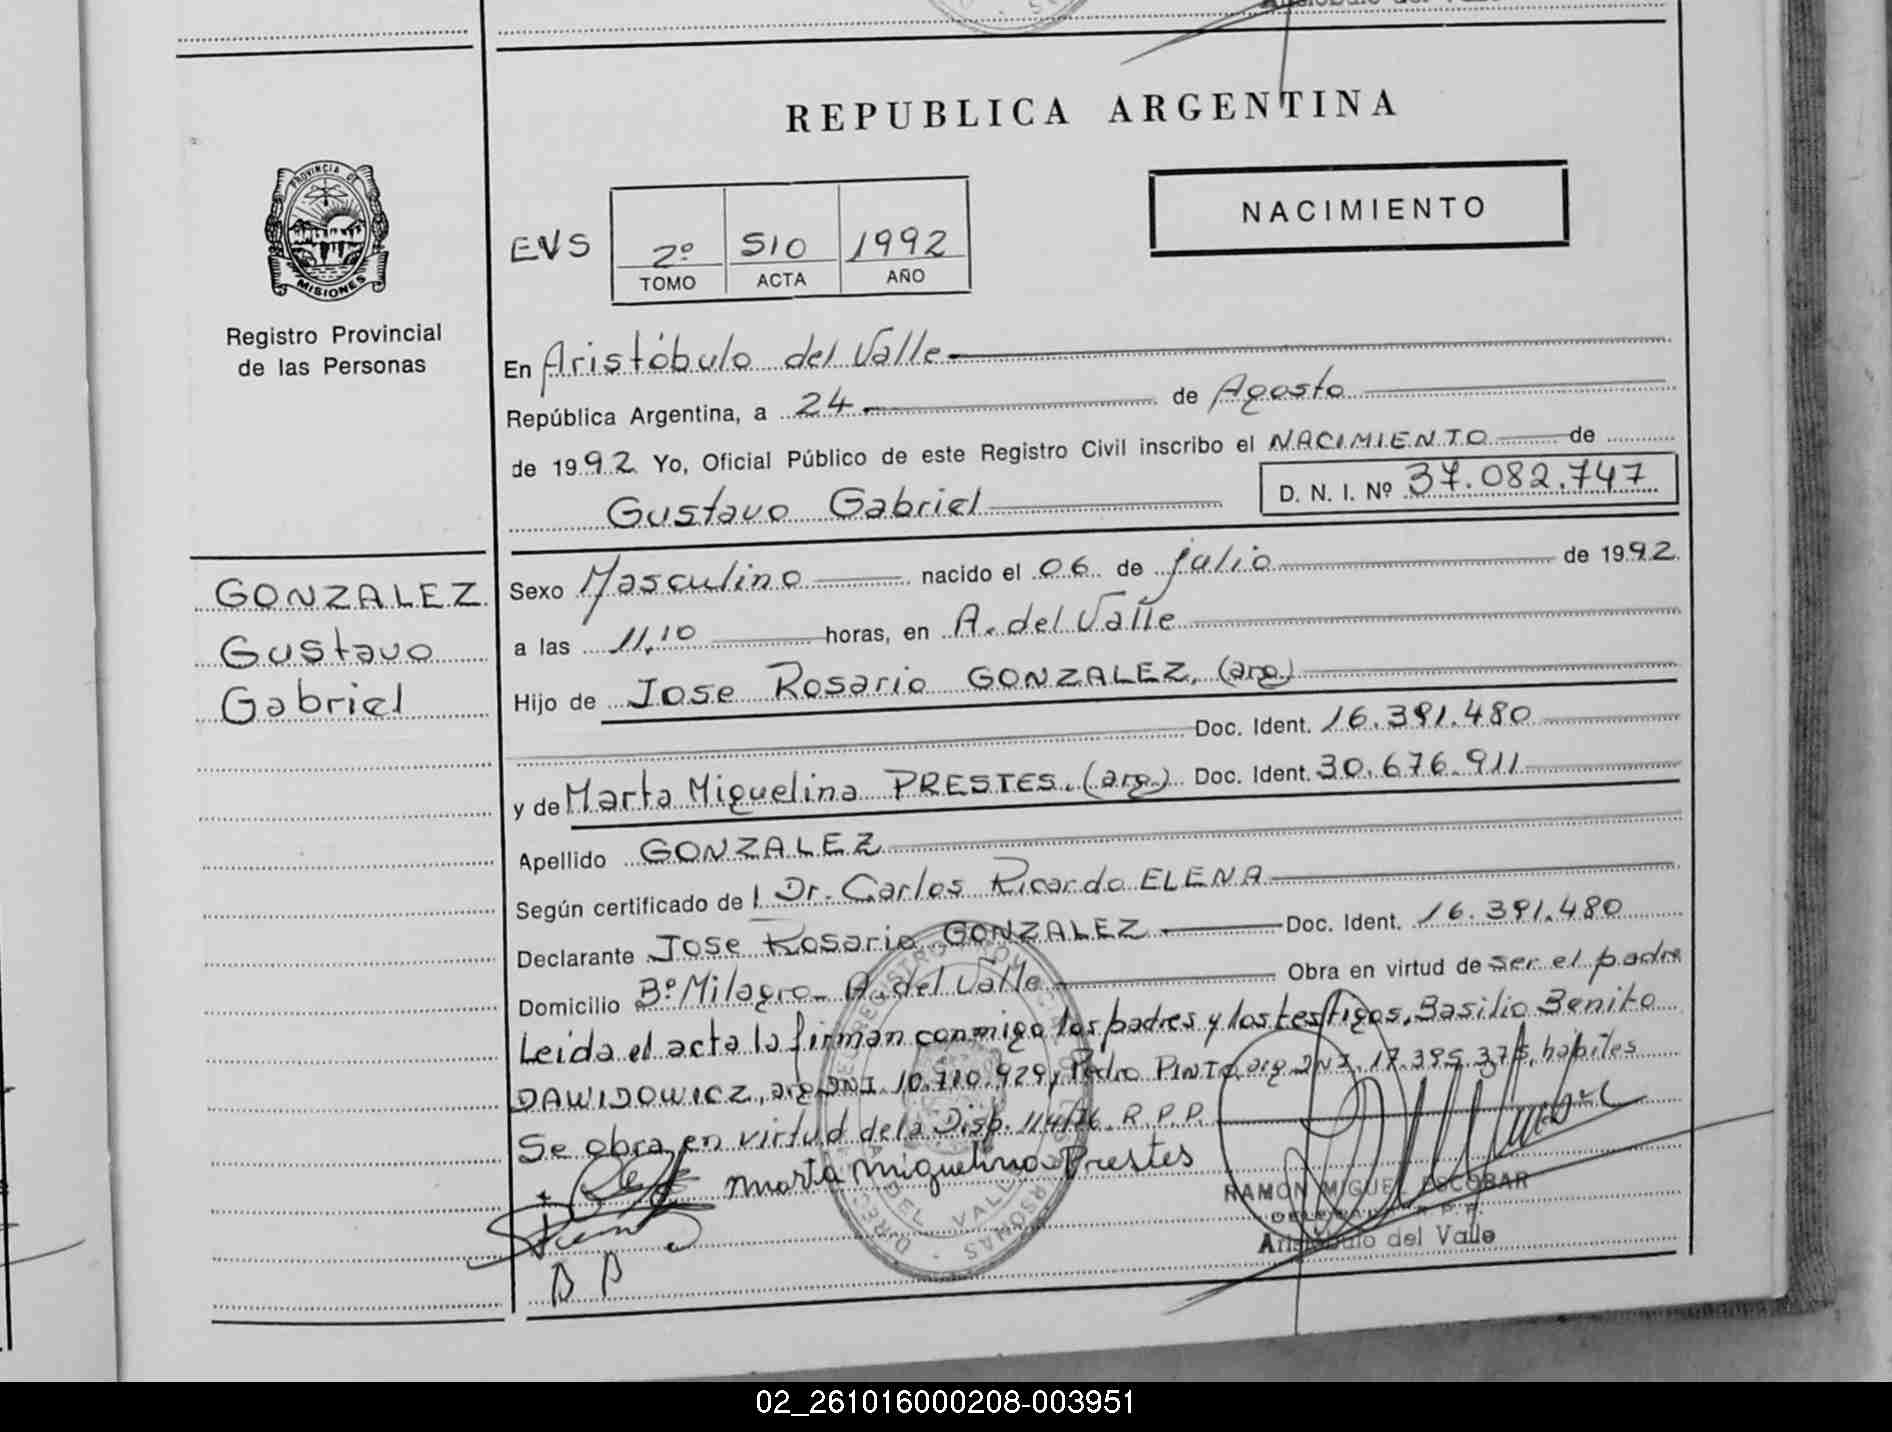 REPUBLICA ARGENTINA
PROVINCIA DE
MISIONES
Registro Provincial
de las Personas
NACIMIENTO
EVS 2º 510 1992
TOMO ACTA AÑO
En Aristóbulo del Valle
República Argentina, a 24 de Agosto
de 1992 Yo, Oficial Público de este Registro Civil inscribo el NACIMIENTO de
Gustavo Gabriel D. N. I. Nº 37.082.747
GONZALEZ
Gustavo
Gabriel
Sexo Masculino nacido el 06 de julio de 1992
a las 11.10 horas, en A. del Valle
Hijo de Jose Rosario GONZALEZ. (arg)
Doc. Ident. 16.391.480
y de Marta Miguelina PRESTES. (arg.) Doc. Ident. 30.676.911
Apellido GONZALEZ
Según certificado de l Dr. Carlos Ricardo ELENA
Declarante Jose Rosario GONZALEZ Doc. Ident. 16.391.480
Domicilio Bº Milagro - A. del Valle Obra en virtud de ser el padre
Leida el acta la firman conmigo los padres y los testigos, Basilio Benito
DAWIDOWICZ, arg DNI. 10.710.929, Pedro PINTO, arg DNI. 17.395.375, habiles
Se obra en virtud de la Disp. 114/76 R.P.P.
Marta Miguelina Prestes
RAMON MIGUEL ESCOBAR
Aristóbulo del Valle
02_261016000208-003951